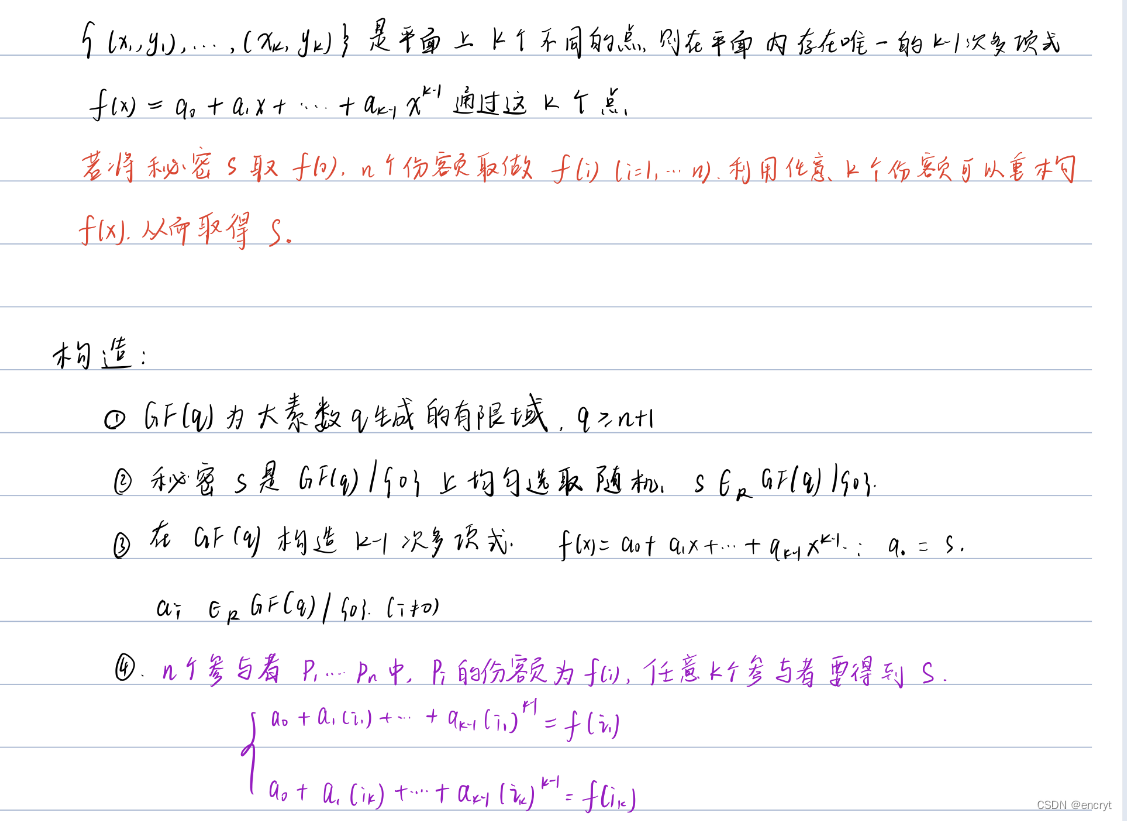 {(x₁,y₁),…,(xₖ,yₖ)} 是平面上 k 个不同的点,则在平面内存在唯一的k-1次多项式
f(x) = a₀ + a₁x + … + aₖ₋₁ x^{k-1} 通过这 k 个点,
若将秘密 s 取 f(0), n个份额取做 f(i) (i=1,…n). 利用任意 k 个份额可以重构
f(x). 从而取得 S。
构造:
① GF(q) 为大素数q生成的有限域, q≥n+1
② 秘密 s 是 GF(q)/{0} 上均匀选取随机, s ∈_R GF(q)/{0}.
③ 在 GF(q) 构造 k-1 次多项式. f(x)= a₀ + a₁x+…+ aₖ₋₁x^{k-1}.: a₀ = s.
aᵢ ∈_R GF(q)/{0}. (i≠0)
④. n个参与者 P₁…Pₙ中, Pᵢ的份额为f(i), 任意k个参与者要得到 S.
{ a₀ + a₁(i₁) + … + aₖ₋₁(i₁)^{k-1} = f(i₁)
a₀ + a₁(iₖ) + … + aₖ₋₁(iₖ)^{k-1} = f(iₖ)
CSDN @encryt